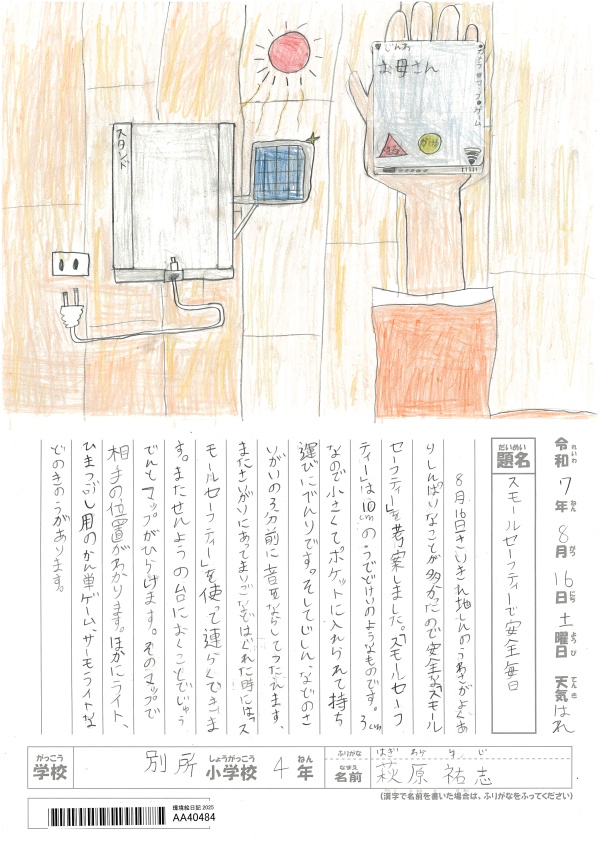 スタンド
じしん
お母さん
カメラ
マップ
ゲーム
令和7年8月16日土曜日 天気はれ
れいわ ねん がつ にち よう び てん き
だいめい
題名
スモールセーフティーで安全毎日
8月16日さいきん地しんのうわさがよくあ
りしんぱいなことが多かったので安全な「スモール
セーフティー」を考案しました。「スモールセーフ
ティー」は10㎝のうでどけいのようなものです。3㎝
なので小さくてポケットに入れられて持ち
運びにべんりです。そしてじしんなどのさ
いがいの3分前に音をならしてつたえます、
またさいがいにあってまいごなどではぐれた時には「ス
モールセーフティー」を使って連らくできま
す。またせんようの台におくことでじゅう
でんとマップがひらけます。そのマップで
相手の位置がわかります。ほかにライト、
ひまつぶし用のかん単ゲーム、サーモライトな
どのきのうがあります。
がっこう
学校
別所小学校4年
しょうがっこう ねん
ふりがな
はぎ わら ゆう じ
なまえ
名前
萩原祐志
(漢字で名前を書いた場合は、ふりがなをふってください)
環境絵日記 2025
AA40484